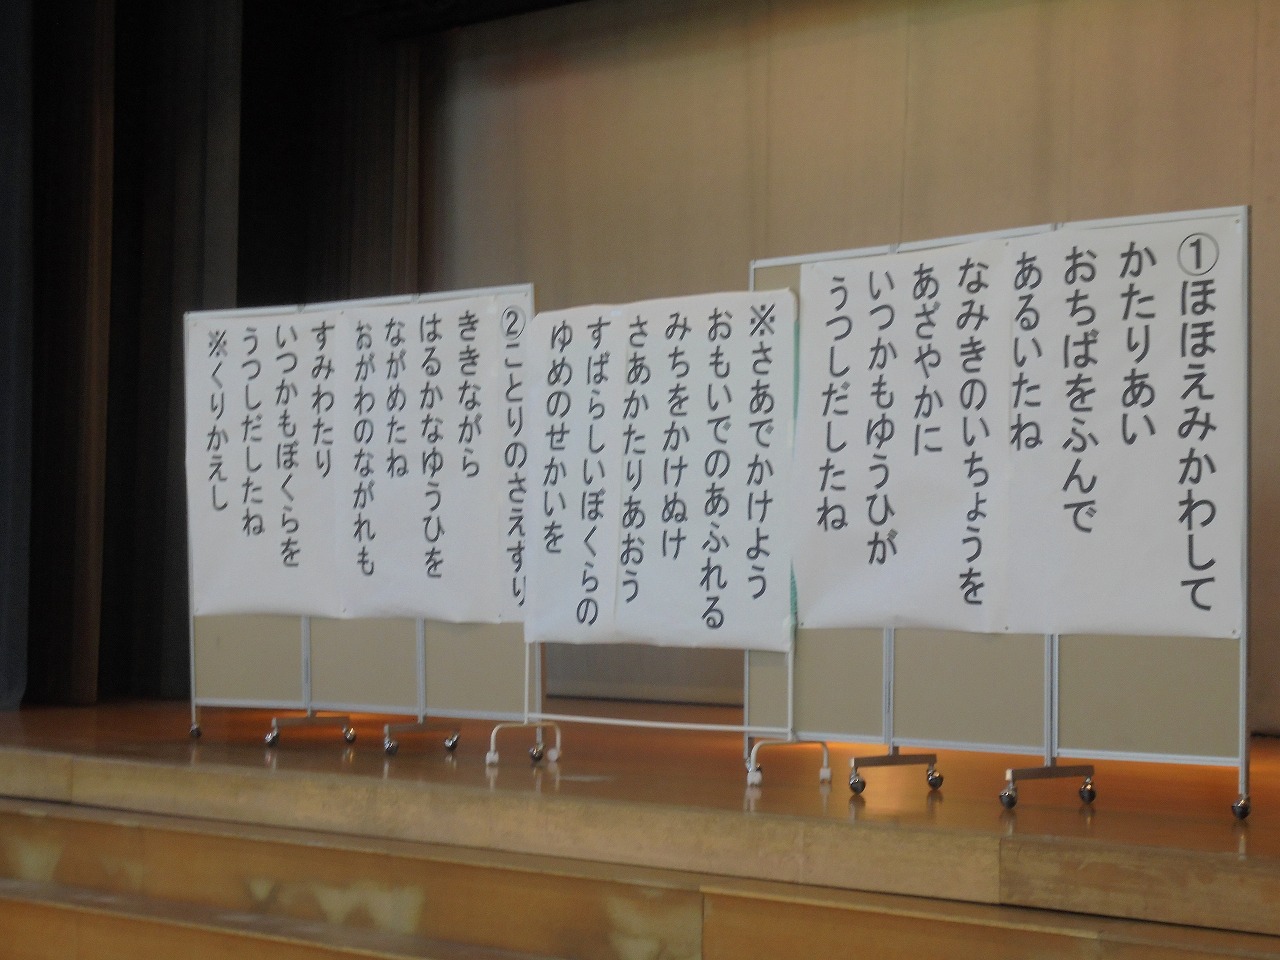 ①ほほえみかわして
かたりあい
おちばをふんで
あるいたね
なみきのいちょうを
あざやかに
いつかもゆうひが
うつしだしたね
※さあでかけよう
おもいでのあふれる
みちをかけぬけ
さあかたりあおう
すばらしいぼくらの
ゆめのせかいを
②ことりのさえずり
ききながら
はるかなゆうひを
ながめたね
おがわのながれも
すみわたり
いつかもぼくらを
うつしだしたね
※くりかえし